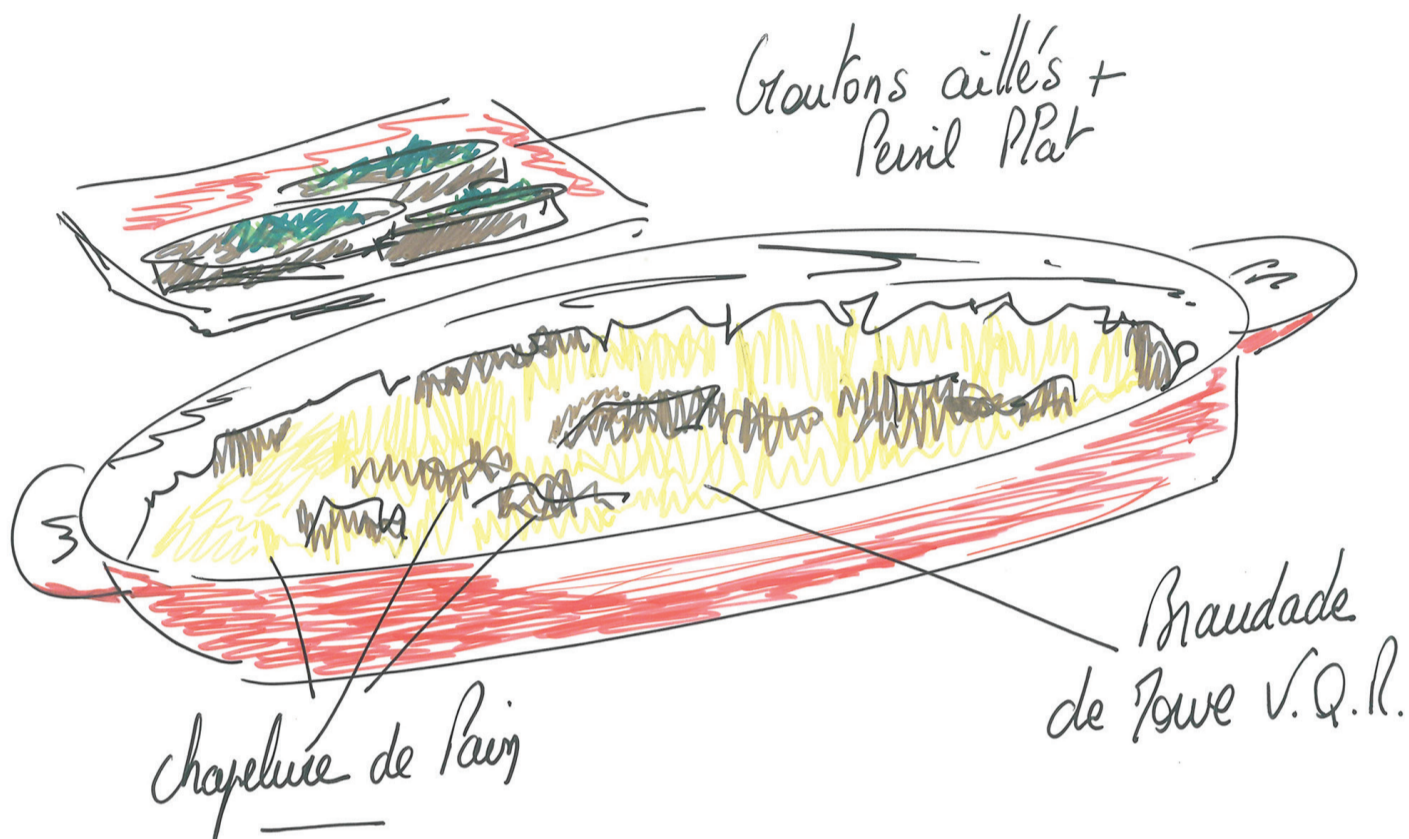 Croutons aillés +
Persil Plat
Brandade
de Morue V.Q.R.
chapelure de Pain